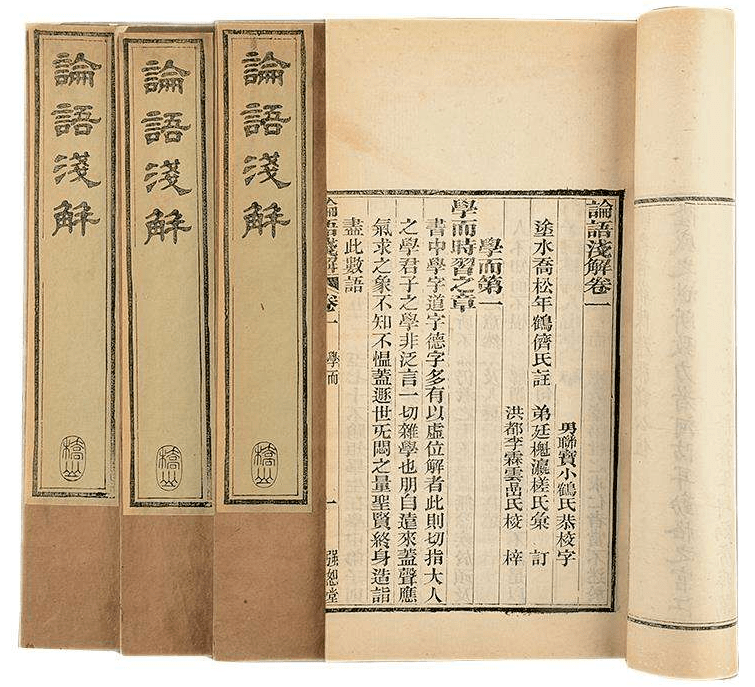 論語淺解
論語淺解
論語淺解
論語淺解卷一
途水喬松年鶴儕氏註
弟廷櫆瀛槎氏彙訂
男聯寶小鶴氏恭校字
洪都李霖雲嵒氏校梓
學而第一
學而時習之章
書中學字道字德字多有以虛位解者此則切指大人
之學君子之學非泛言一切雜學也朋自遠來蓋聲應
氣求之象不知不慍蓋遯世旡悶之量聖賢終身造詣
盡此數語
論語淺解
卷一
學而
一
強恕堂